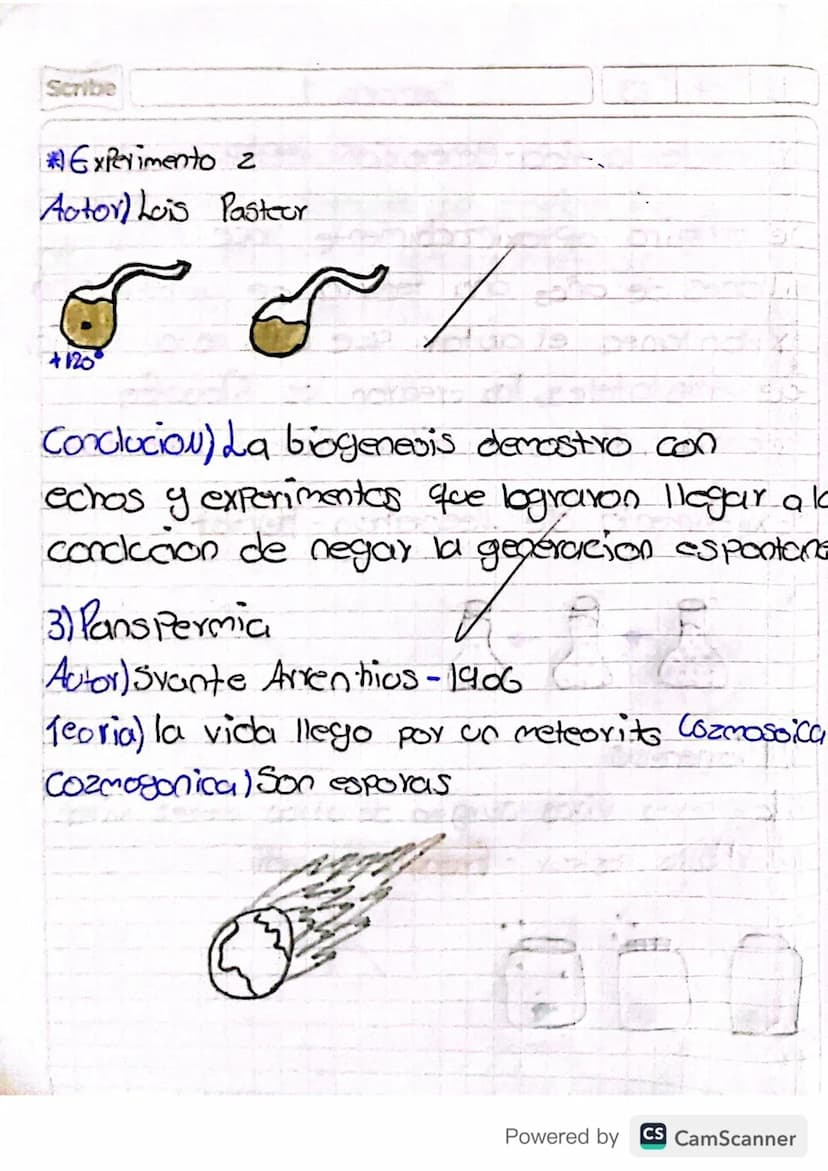 Scribe
*) Experimento 2
Autor) Lois Pasteur
+120°
Conclucion) La biogenesis demostro con
echos y experimentos que lograron llegar a la
conclucion de negar la generacion espontane
3) Panspermia
Autor) Svante Arrenhios - 1906
Teoria) la vida llego por un meteorito Cozmosoica
Cozmogonica) Son esporas
Powered by CS CamScanner